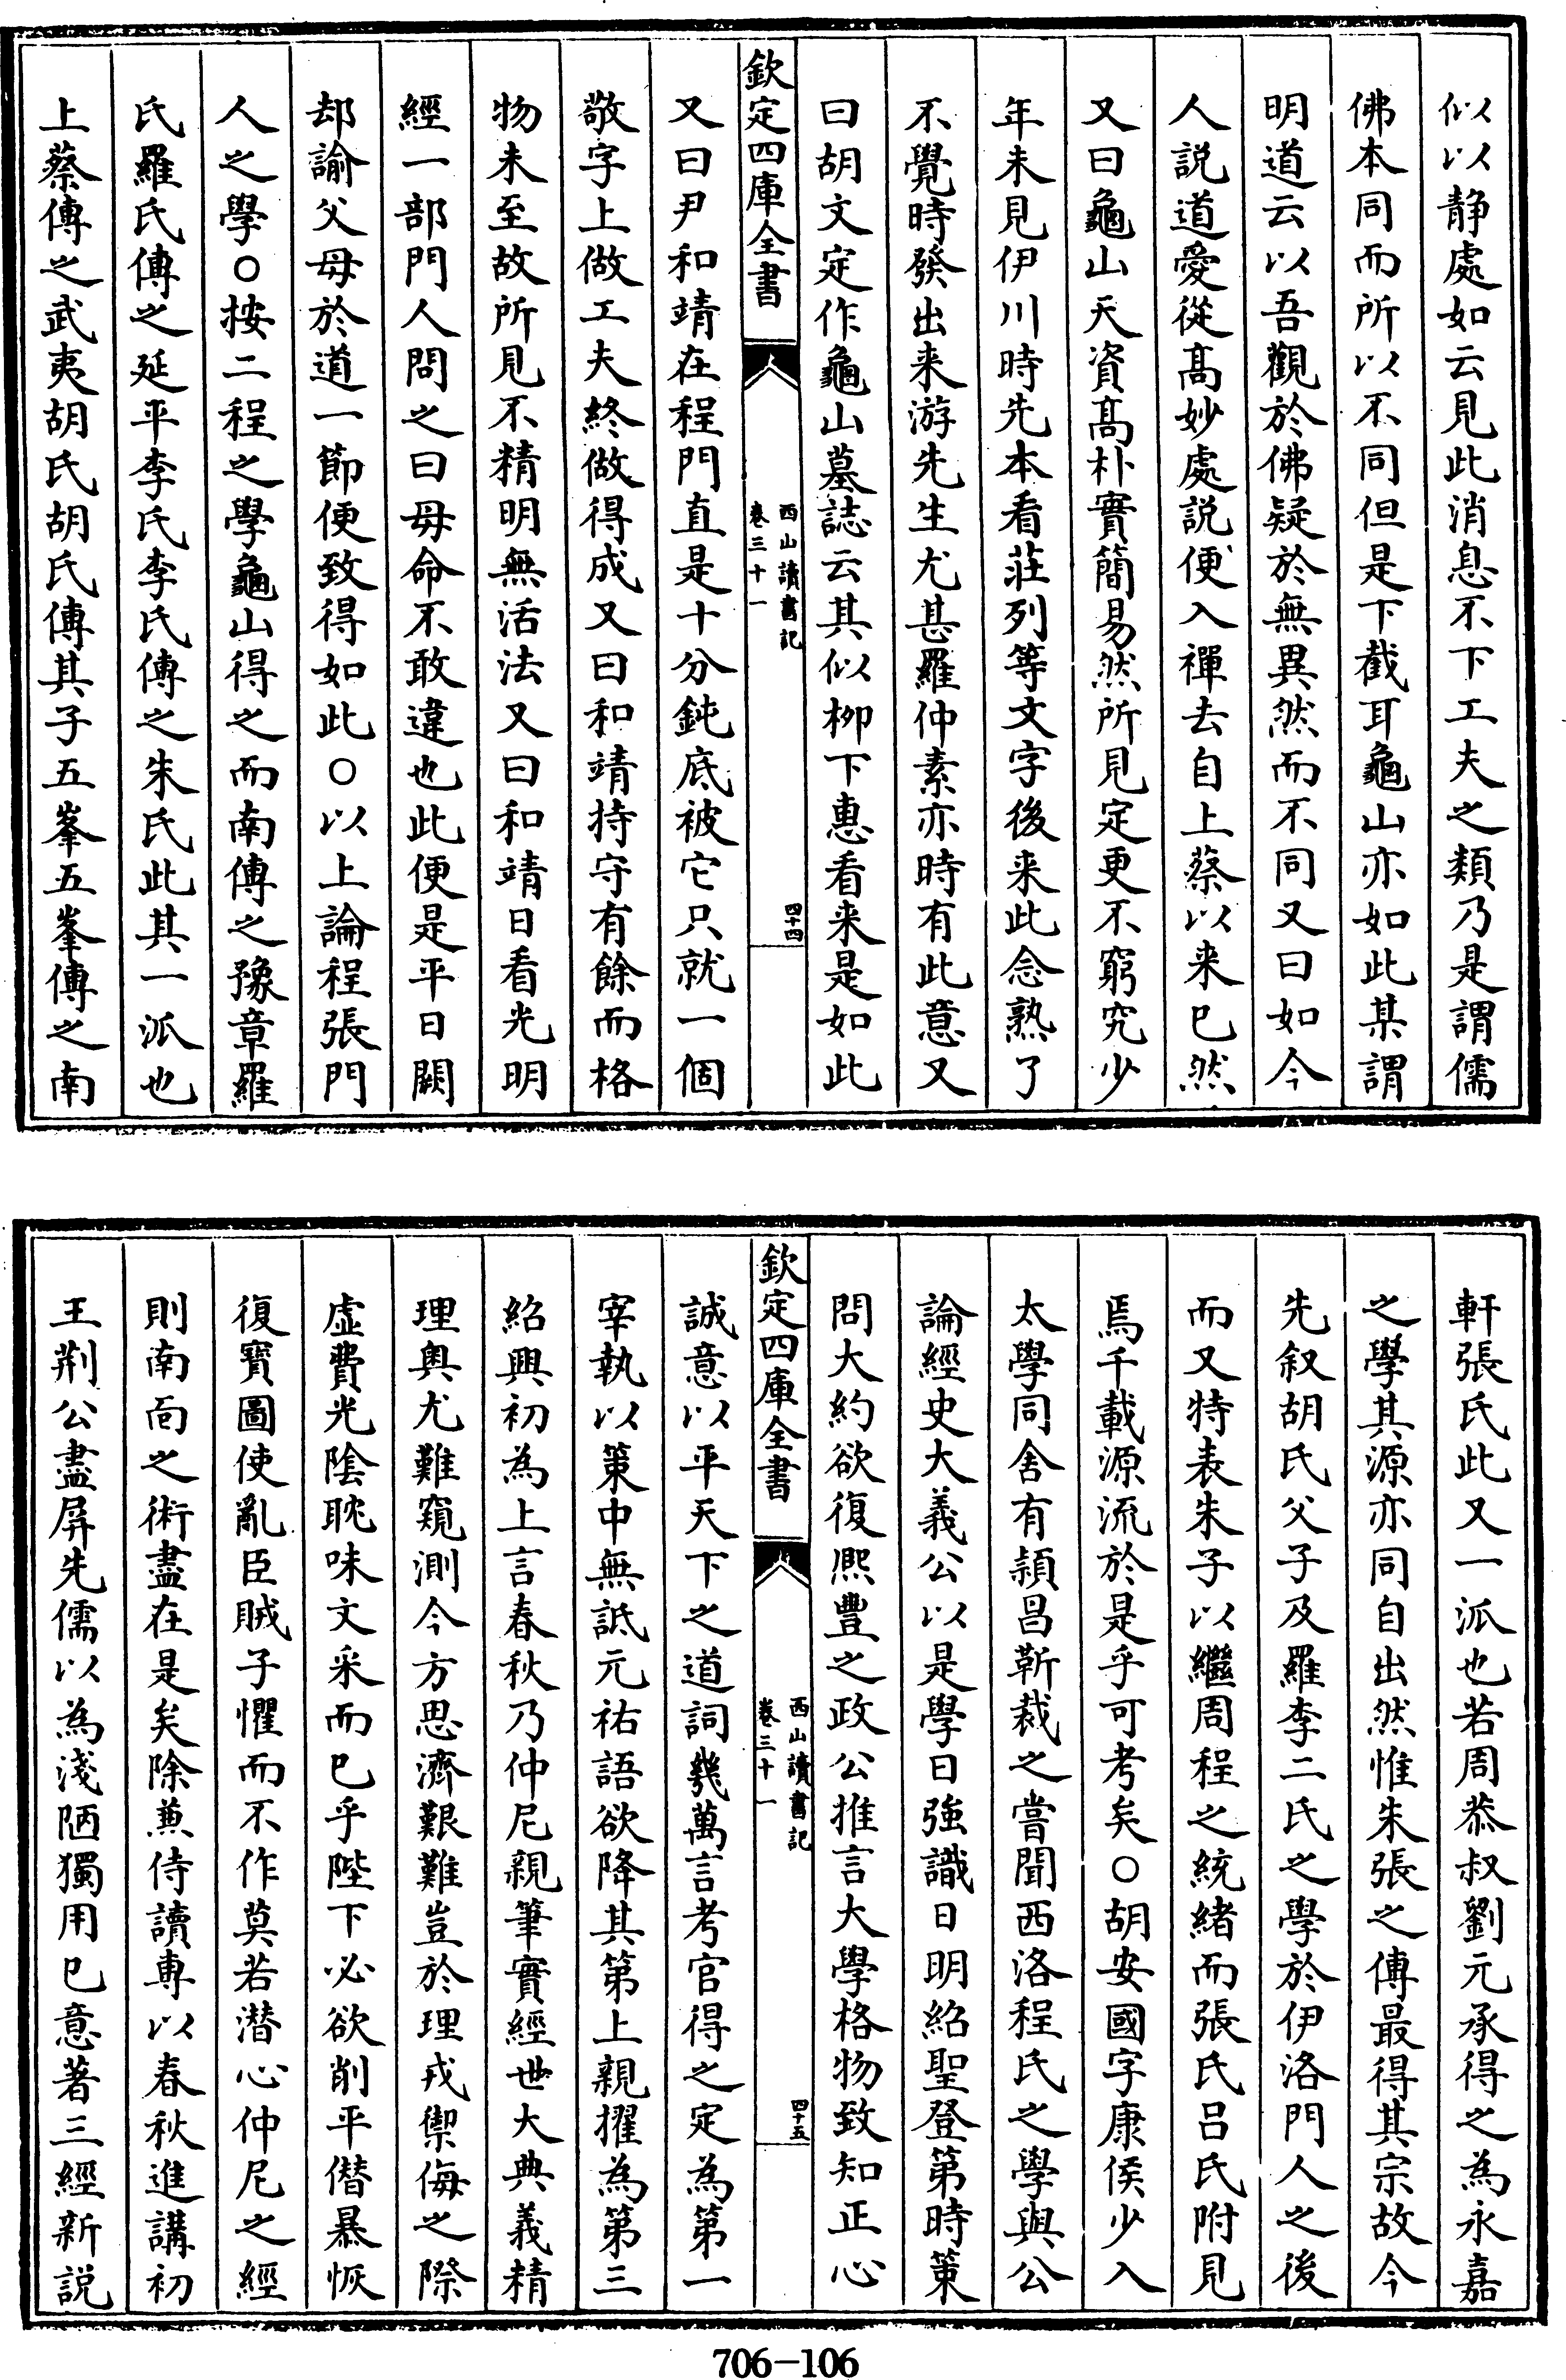 似以静處如云見此消息不下工夫之類乃是謂儒
佛本同而所以不同但是下截耳龜山亦如此某謂
明道云以吾觀於佛疑於無異然而不同又曰如今
人説道愛從髙妙處説便入禪去自上蔡以来已然
又曰龜山天資髙朴實簡易然所見定更不窮究少
年未見伊川時先本看莊列等文字後来此念熟了
不覺時發出来游先生尤甚羅仲素亦時有此意又
曰胡文定作龜山墓誌云其似栁下惠看来是如此
欽定四庫全書
西山讀書記
卷三十一
四十四
又曰尹和靖在程門直是十分鈍底被它只就一個
敬字上做工夫終做得成又曰和靖持守有餘而格
物未至故所見不精明無活法又曰和靖日看光明
經一部門人問之曰母命不敢違也此便是平日闕
却諭父母於道一節便致得如此○以上論程張門
人之學○按二程之學龜山得之而南傳之豫章羅
氏羅氏傳之延平李氏李氏傳之朱氏此其一派也
上蔡傳之武夷胡氏胡氏傳其子五峯五峯傳之南
軒張氏此又一派也若周恭叔劉元承得之為永嘉
之學其源亦同自出然惟朱張之傳最得其宗故今
先叙胡氏父子及羅李二氏之學於伊洛門人之後
而又特表朱子以繼周程之統緒而張氏吕氏附見
焉千載源流於是乎可考矣○胡安國字康侯少入
太學同舍有潁昌靳裁之嘗聞西洛程氏之學與公
論經史大義公以是學日強識日明紹聖登第時策
問大約欲復熈豐之政公推言大學格物致知正心
欽定四庫全書
西山讀書記
卷三十一
四十五
誠意以平天下之道詞幾萬言考官得之定為第一
宰執以策中無詆元祐語欲降其第上親擢為第三
紹興初為上言春秋乃仲尼親筆實經世大典義精
理奥尤難窺測今方思濟艱難豈於理戎禦侮之際
虚費光陰耽味文采而已乎陛下必欲削平僭暴恢
復寳圖使亂臣賊子懼而不作莫若潜心仲尼之經
則南面之術盡在是矣除兼侍讀專以春秋進講初
王荆公盡屏先儒以為淺陋獨用已意著三經新説
706-106